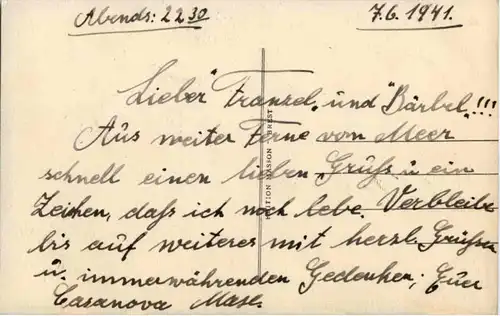 Abends: 22 30
7.6.1941.
Lieber "Franzel" und "Bärbel"!!!
Aus weiter Ferne vom Meer
schnell einen lieben Gruß u. ein
Zeichen, daß ich noch lebe. Verbleibe
bis auf weiteres mit herzl. Grüßen
u. immerwährenden Gedenken; Euer
Casanova Maxe.
EDITION MASSON BREST